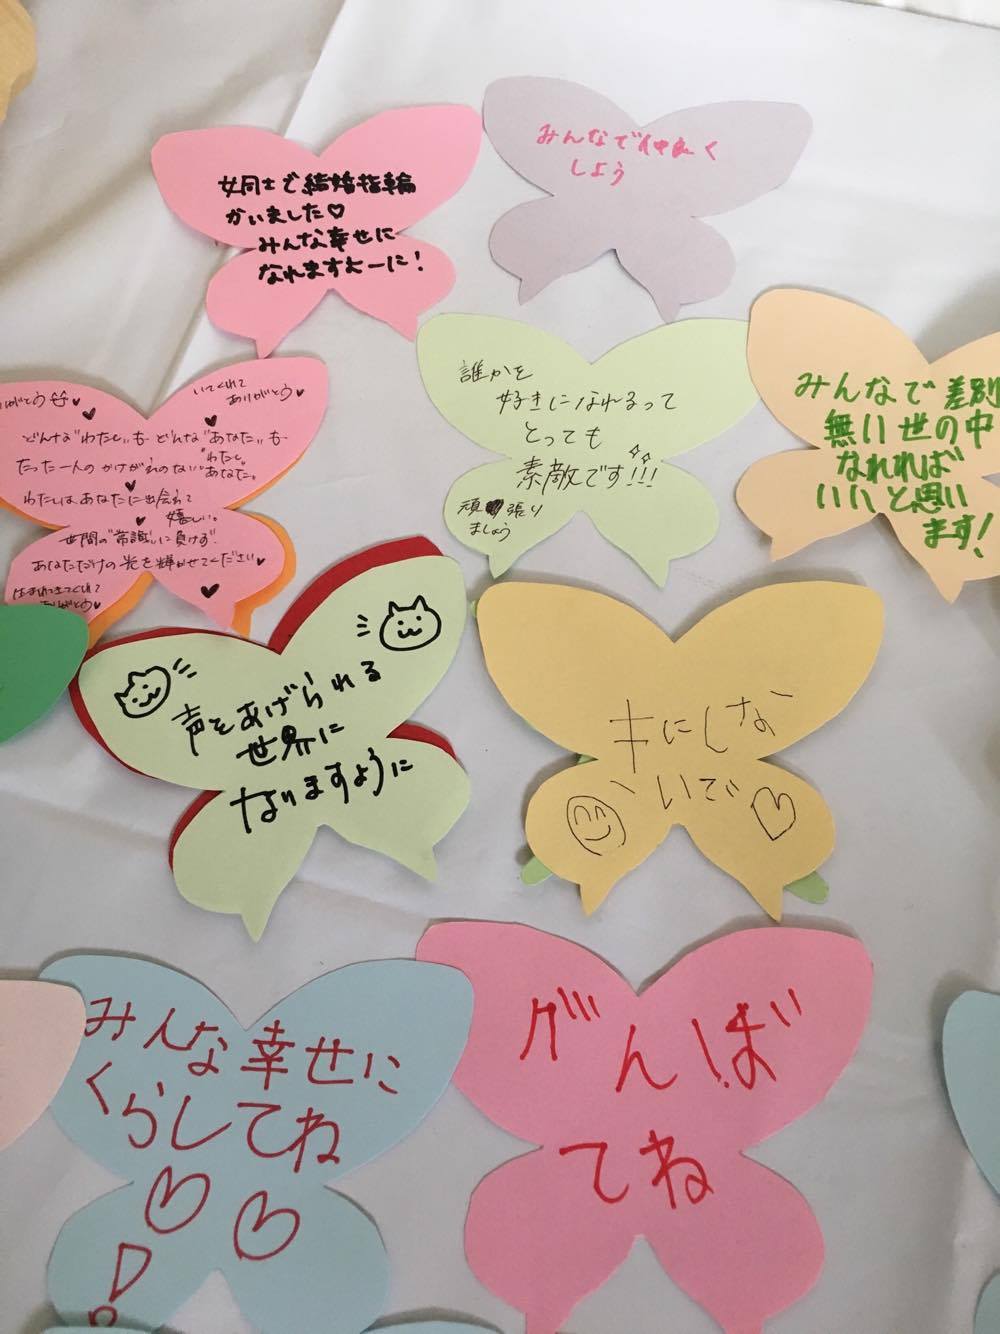 女同士で結婚指輪
かいました♡
みんな幸せに
なれますよーに！
みんなで仲良く
しよう
ありがとう
いてくれて
ありがとう♥
どんな"わたし"も どんな"あなた"も
たった一人のかけがえのない"わたし"
あなた。
わたしはあなたに出会えて
嬉しい。
世間の"常識"に負けず
あなただけの光を輝かせてください♥
ありがとう♥
誰かを
好きになれるって
とっても
素敵です!!!
頑張り
ましょう
みんなで差別
無い世の中
なれれば
いいと思い
ます!
声をあげられる
世界に
なりますように
キにしな
いで♡
みんな幸せに
くらしてね
♡♡
!
がんば
てね